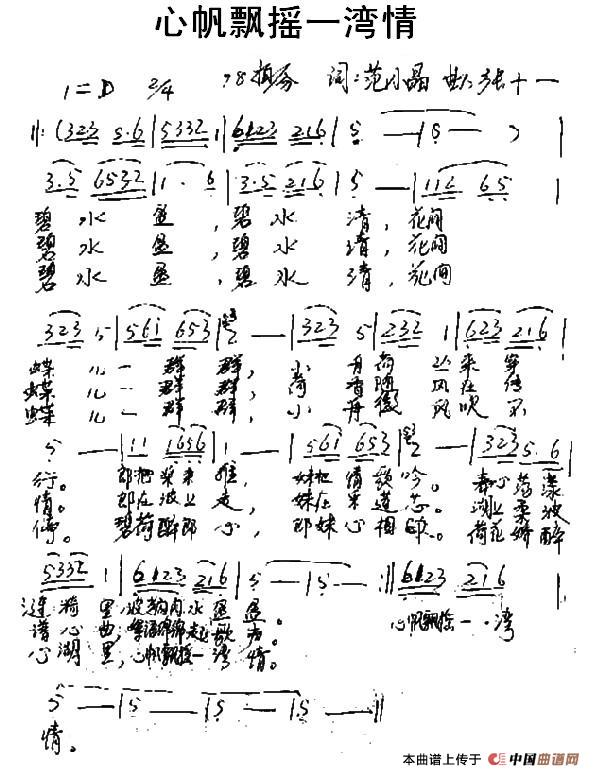 心帆飘摇一湾情
1=D 2/4 词:范月晶 曲:张十一
||:(323 5.6|5332 1|6123 216|5 —|5 — )|
3.5 6532|1. 6|3.5 216|5 —|116 65|
碧水盈,碧水清,花间
碧水盈,碧水清,花间
碧水盈,碧水清,花间
323 5|561 653|2 —|323 5|232 1|623 216|
蝶儿一群群,小舟荷丛来穿
蝶儿一群群,荷香随风在传
蝶儿一群群,小舟微风吹不
5 —|11 1656|1 —|561 653|2 —|323 5.6|
行。郎把采来难,妹把情歌吟。春心荡漾
情。郎在波上走,妹在采莲芯。湖上柔波
停。碧荷醉郎心,郎妹心相映。荷花娇醉
5332 1|6123 216|5 —|5 —:||6123 216|
涟漪里,水盈盈。心帆飘摇一湾
谱心曲,起歌声。
心湖里,心帆飘摇一湾情。
5 —|5 —|5 —|5 —||
情。
本曲谱上传于 中国曲谱网